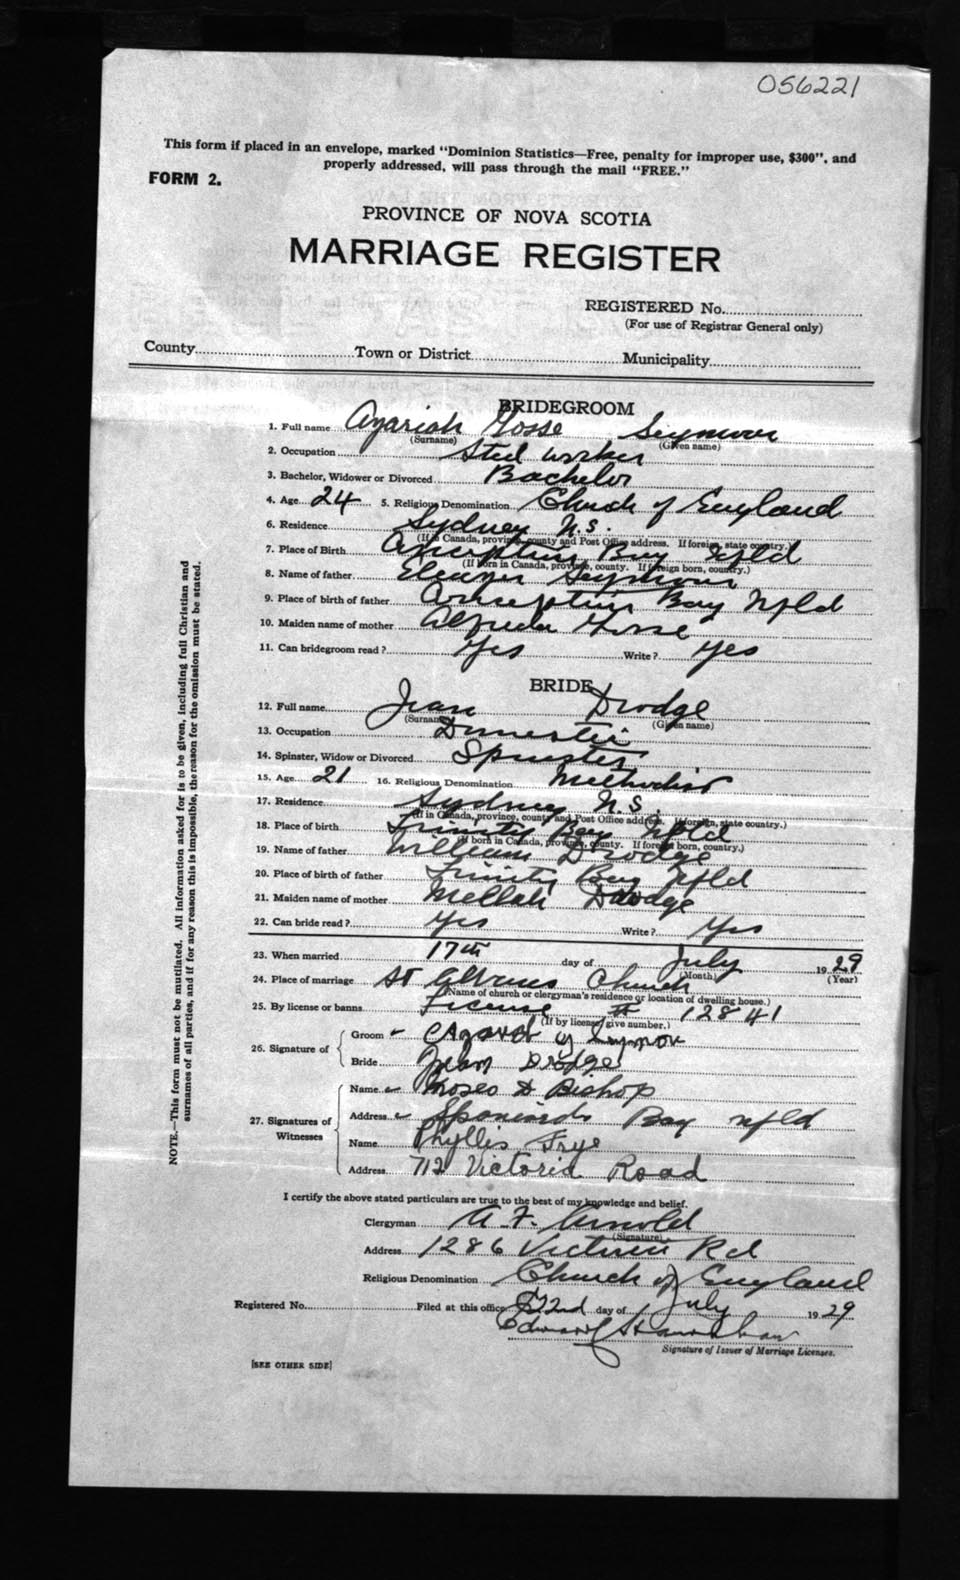 056221
This form if placed in an envelope, marked "Dominion Statistics—Free, penalty for improper use, $300", and
properly addressed, will pass through the mail "FREE."
FORM 2.
PROVINCE OF NOVA SCOTIA
MARRIAGE REGISTER
REGISTERED No.
(For use of Registrar General only)
County Town or District Municipality
BRIDEGROOM
1. Full name Azariah Gosse Seymour
(Surname) (Given name)
2. Occupation Steel worker
3. Bachelor, Widower or Divorced Bachelor
4. Age 24 5. Religious Denomination Church of England
6. Residence Sydney N.S.
(If in Canada, province, county and Post Office address. If foreign, state country.)
7. Place of Birth Conception Bay Nfld
(If born in Canada, province, county. If foreign born, country.)
8. Name of father Eleazer Seymour
9. Place of birth of father Conception Bay Nfld
10. Maiden name of mother Alfreda Gosse
11. Can bridegroom read? Yes Write? Yes
BRIDE
12. Full name Jean Drodge
(Surname) (Given name)
13. Occupation Domestic
14. Spinster, Widow or Divorced Spinster
15. Age 21 16. Religious Denomination Methodist
17. Residence Sydney N.S.
(If in Canada, province, county and Post Office address. If foreign, state country.)
18. Place of birth Trinity Bay Nfld
(If born in Canada, province, county. If foreign born, country.)
19. Name of father William Drodge
20. Place of birth of father Trinity Bay Nfld
21. Maiden name of mother Drodge
22. Can bride read? Yes Write? Yes
23. When married 17th day of July 1929
(Month) (Year)
24. Place of marriage St Albans Church
(Name of church or clergyman's residence or location of dwelling house.)
25. By license or banns License 12841
(If by license, give number.)
26. Signature of Groom Seymour
Bride Jean Drodge
27. Signatures of Witnesses Name Moses D Bishop
Address Spaniards Bay nfld
Name Phyllis Frye
Address 712 Victoria Road
I certify the above stated particulars are true to the best of my knowledge and belief.
Clergyman A. F. Arnold
(Signature)
Address 1286 Victoria Rd
Religious Denomination Church of England
Registered No. Filed at this office 22nd day of July 1929
Edward
Signature of Issuer of Marriage Licenses.
[SEE OTHER SIDE]
NOTE.—This form must not be mutilated. All information asked for is to be given, including full Christian and
surnames of all parties, and if for any reason this is impossible, the reason for the omission must be stated.